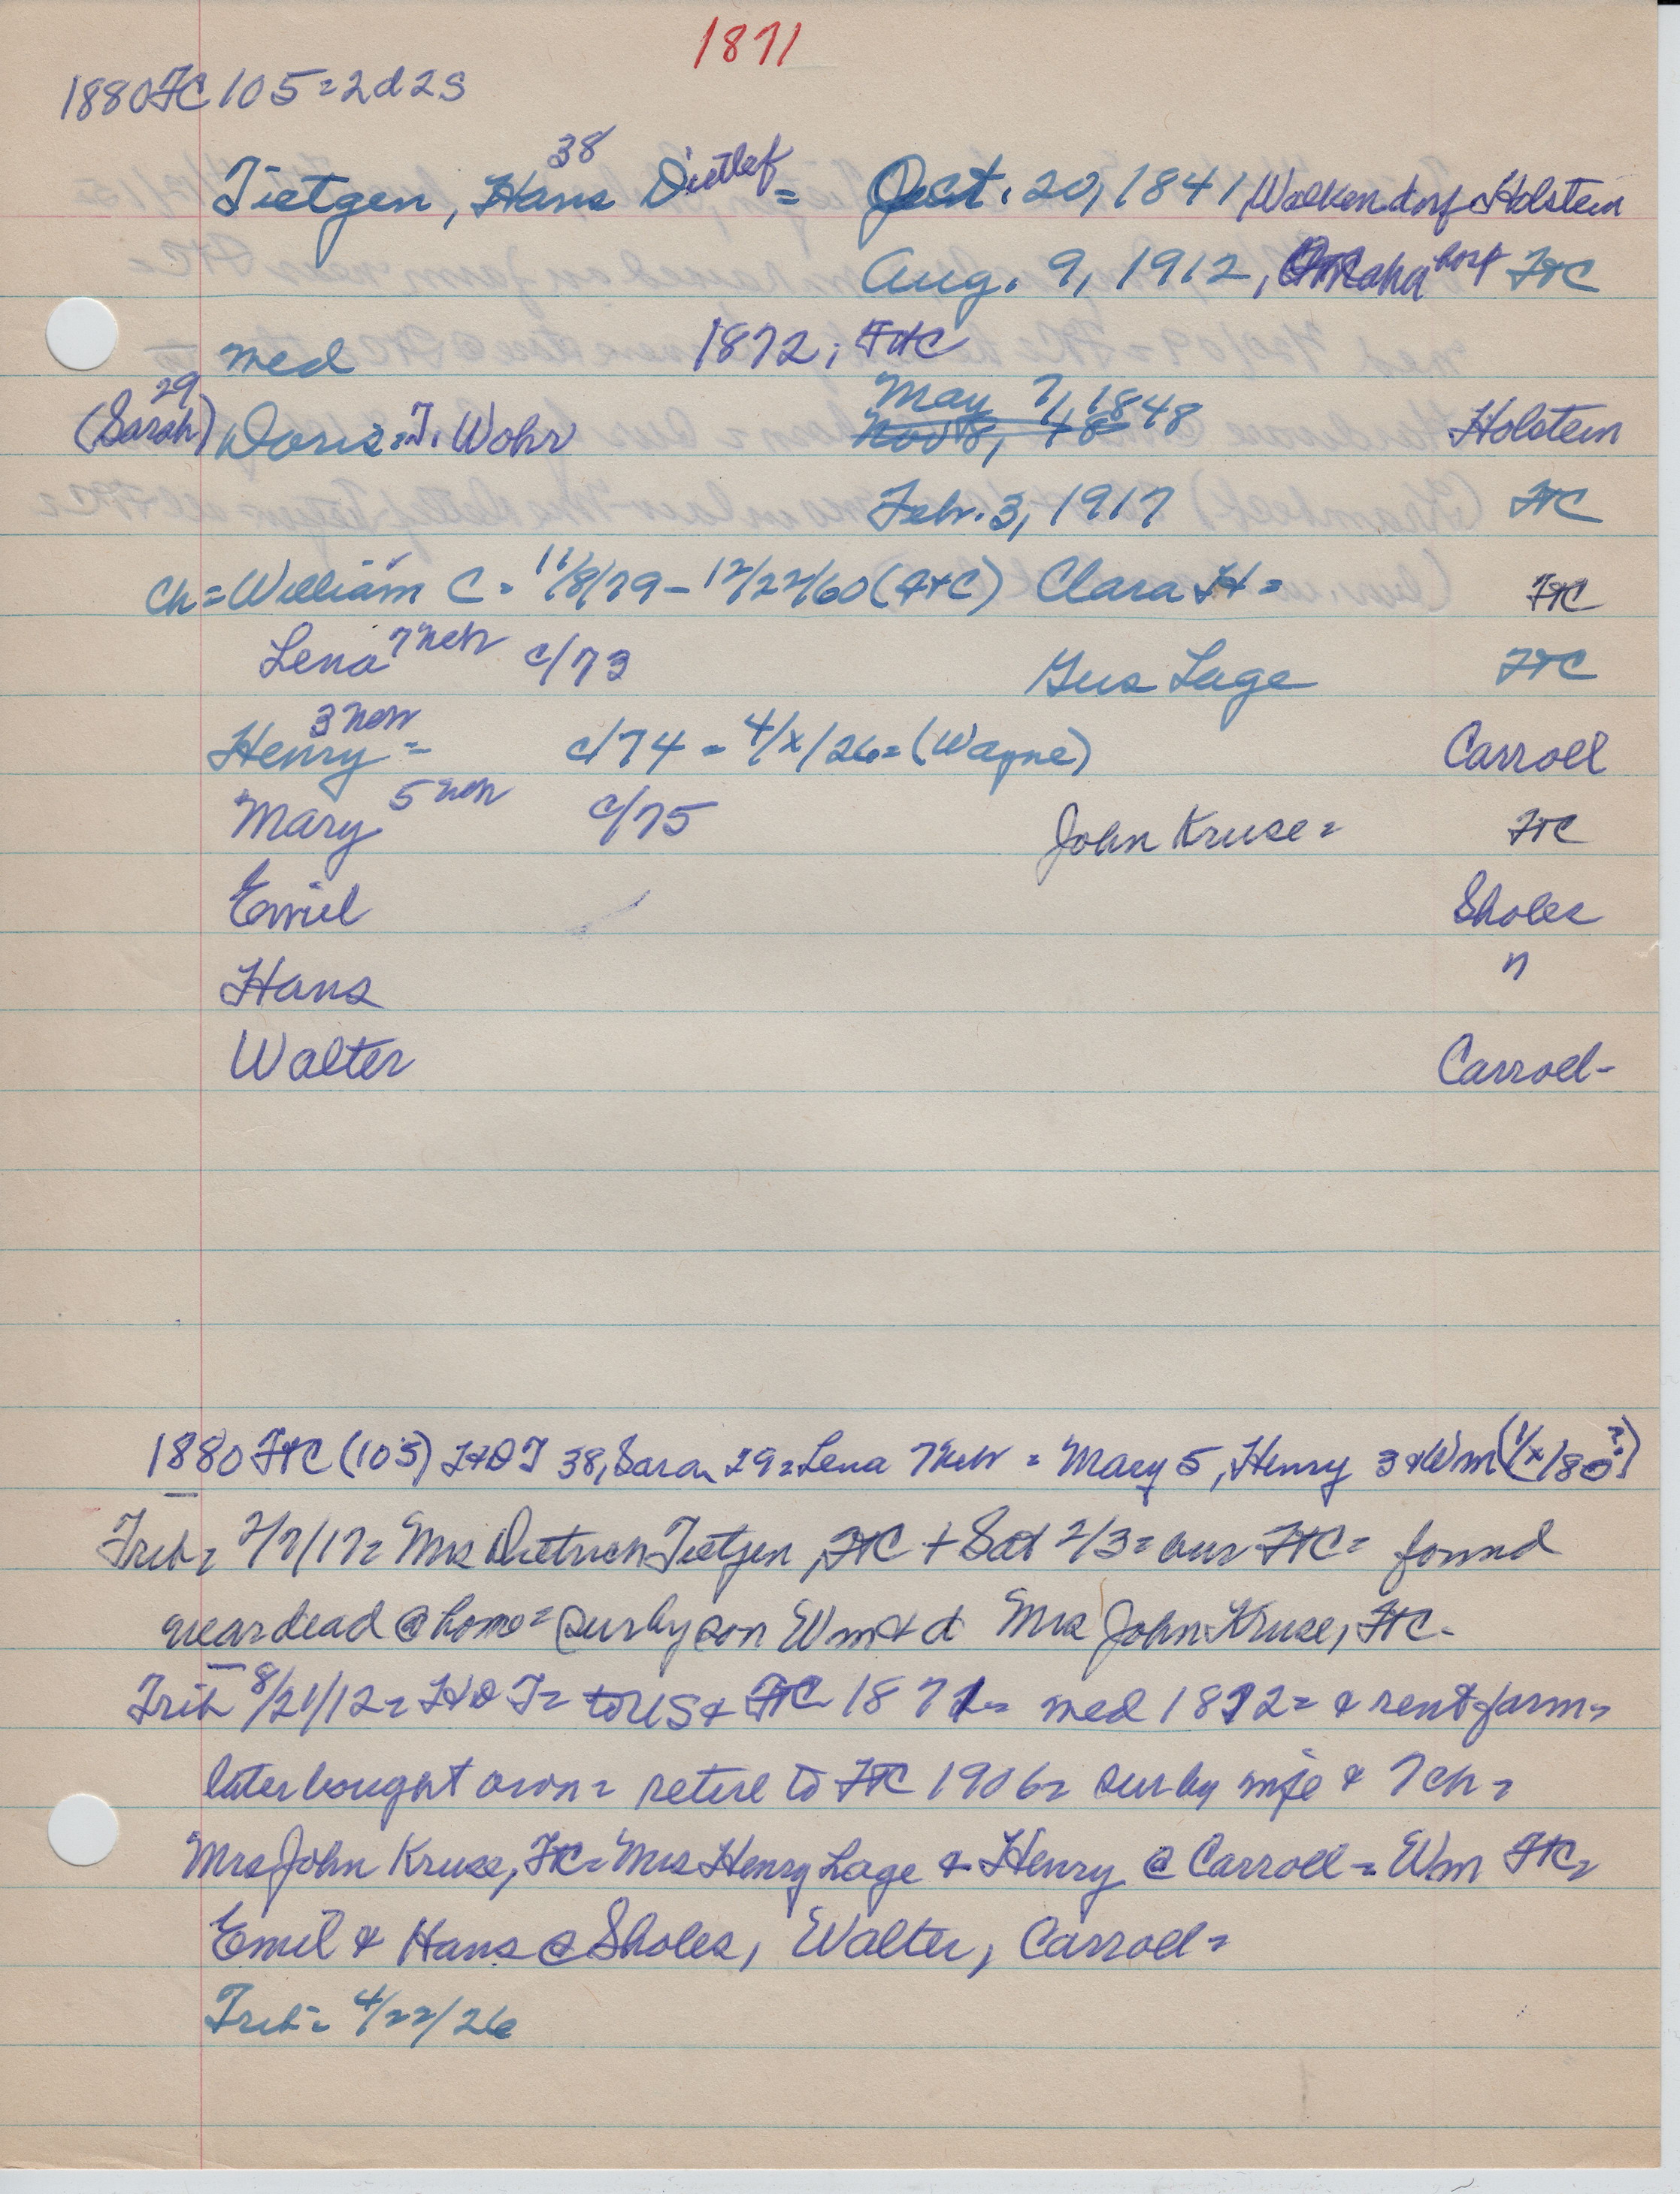 1871
1880 FtC 105 = 2d 2s
38
Tietgen, Hans Dietlef = Oct. 20, 1841, Walkendorf Holstein
Aug. 9, 1912, Omaha hosp FtC
med 1872, FtC
29 May 7, 1848
(Sarah) Doris = T. Wohr Nov 18, 48 Holstein
Febr. 3, 1917 FtC
Ch = William C = 11/8/79 - 12/22/60 (FtC) Clara H = FtC
Lena 7 Neb c/73 Gus Lage FtC
Henry 3 Neb = c/74 = 4/x/26 = (Wayne) Carroll
Mary 5 Neb c/75 John Kruse = FtC
Emil Sholes
Hans "
Walter Carroll -
1880 FtC (105) HDT 38, Sara 29 = Lena 7 Neb = Mary 5, Henry 3 & Wm (1/x/80?)
Trib = 2/7/17 = Mrs Dietrich Tietgen, FtC + Sat 2/3 = bur FtC = found
near dead @ home = sur by son Wm & d Mrs John Kruse, FtC -
Trib 8/21/12 = HDT = to US & FtC 1871 = med 1872 = & rent farm =
later bought own = retire to FtC 1906 = sur by wife & 7 ch =
Mrs John Kruse, FtC = Mrs Henry Lage & Henry @ Carroll = Wm FtC =
Emil & Hans @ Sholes, Walter, Carroll =
Trib = 4/22/26